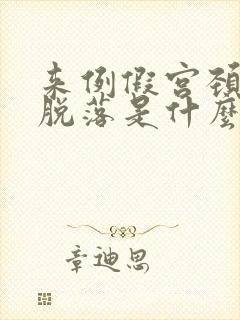 来例假宫颈
脱落是什麼
章迪思